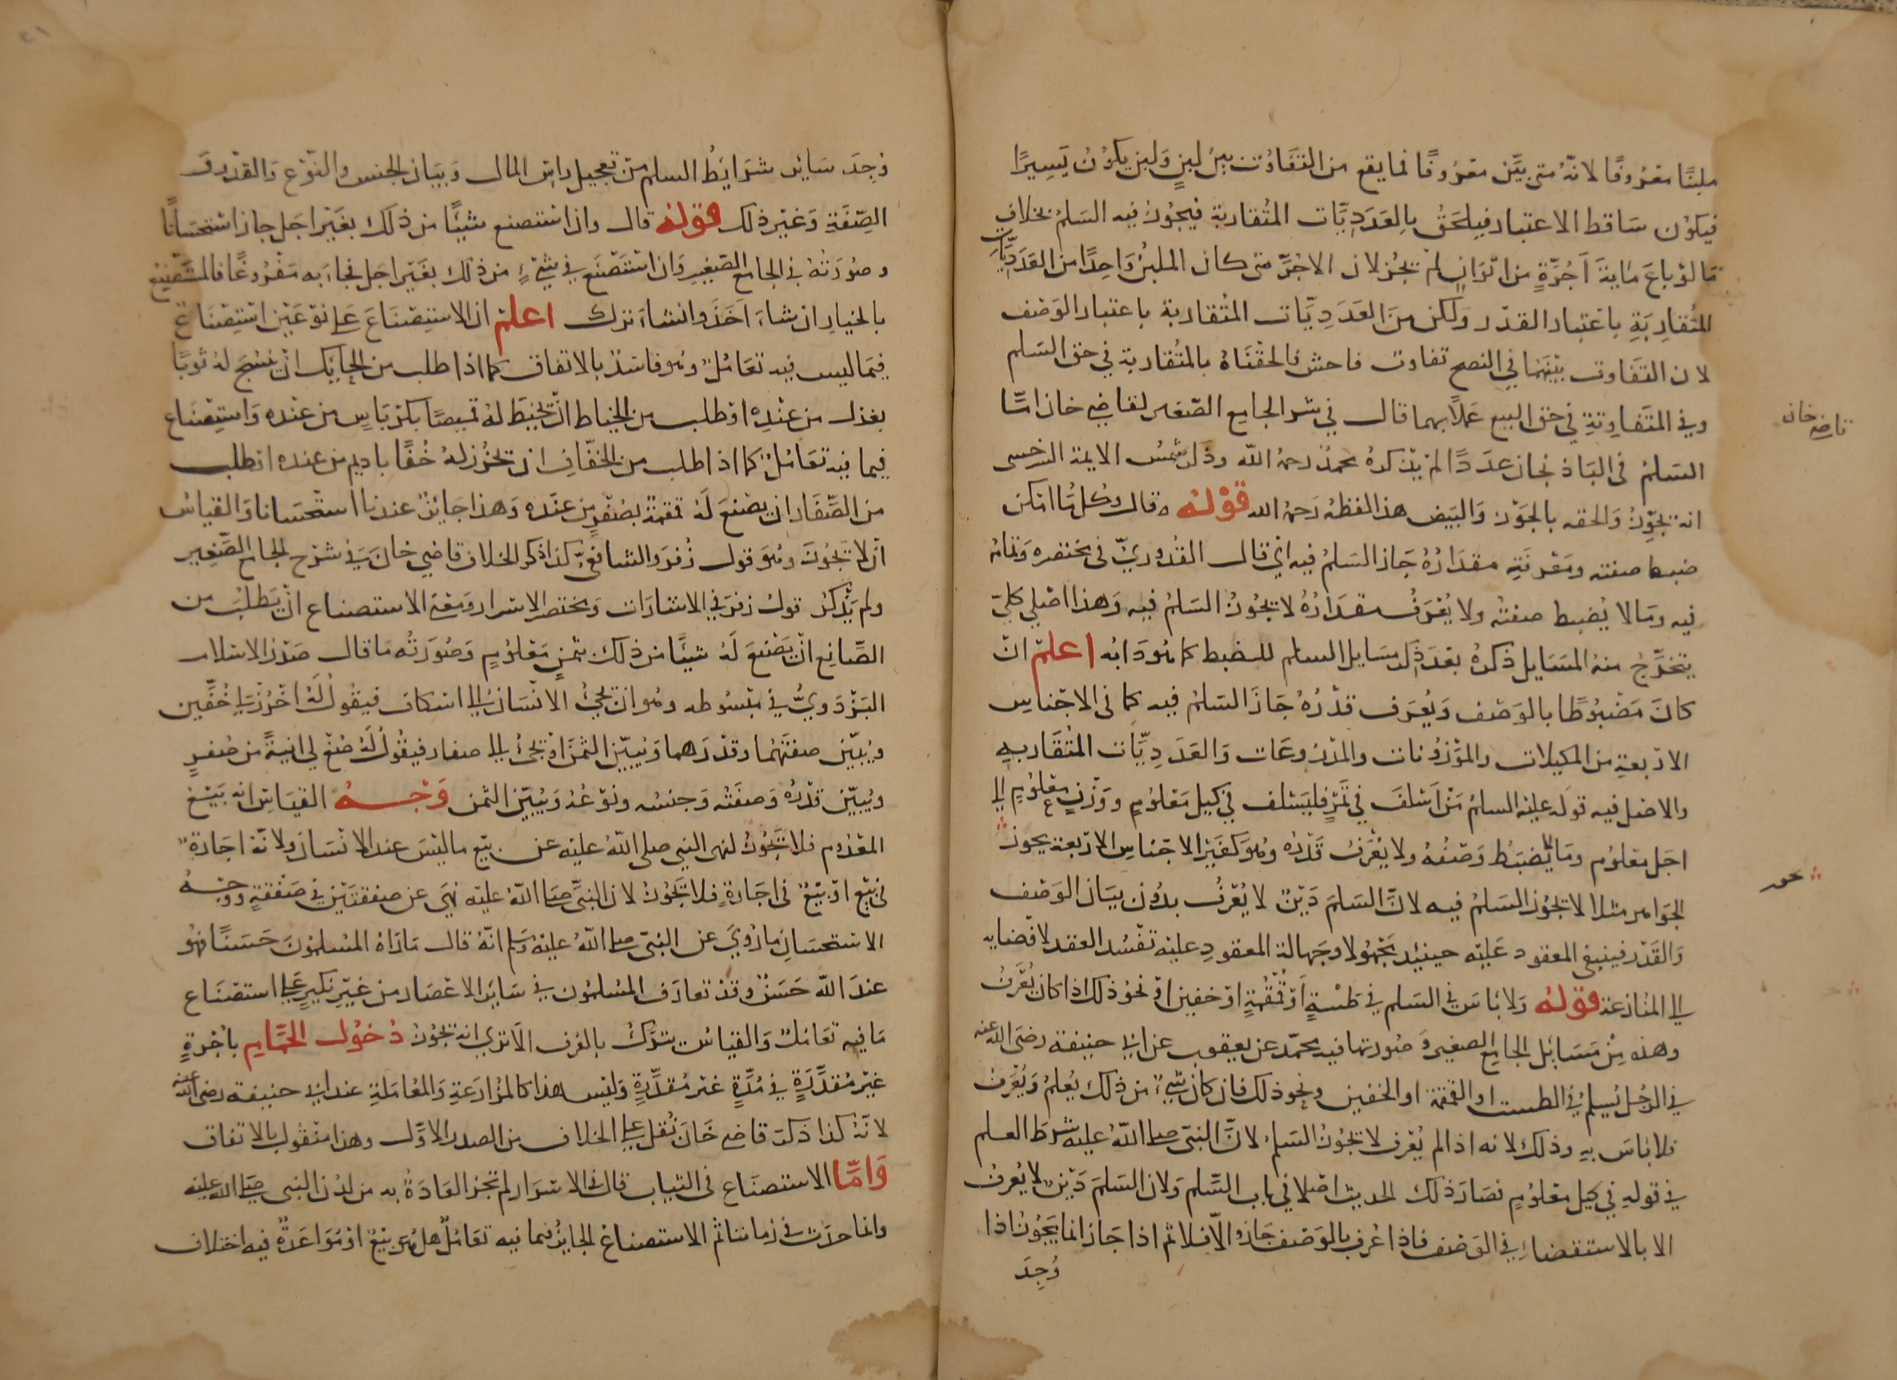 ملبنًا معروفًا لانه متى بيّن معروفًا فما يقع من التفاوت بين لبنٍ ولبن يكون يسيرًا
فيكون ساقط الاعتبار فيلحق بالعدديّات المتقاربة فيجوز فيه السلم بخلاف
ما لو باع مايةَ آجُرّةٍ من اتوانٍ لم يجز لان الاجرّ متى كان الملبن واحدًا من العدديّات
المتقاربة باعتبار القدر ولكن من العدديات المتقاربة باعتبار الوصف
لان التفاوت بينهما في النضج تفاوت فاحش فالحقناه بالمتقاربة في حق السلم
وفي المتفاوتة في حق البيع عملا بهما قال في شرح الجامع الصغير لقاضي خان امّا
قاضي خان
السلم في الباذنجان عددًا لم يذكره محمد رحمه الله وذكر شمس الايمة السرخسي
انه يجوز والحقه بالجوز والبيض هذا لفظه رحمه الله قوله قال وكل ما امكن
ضبط صفته ومعرفة مقداره جاز السلم فيه اي قال القدوريّ في مختصره وتمامه
فيه وما لا يُضبط صفته ولا يُعرف مقداره لا يجوز السلم فيه وهذا اصل كليّ
يتخرّج منه المسايل ذكره بعد ذكر مسايل السلم للضبط كما هو دابه اعلم ان
كان مضبوطًا بالوصف ويُعرف قدره جاز السلم فيه كما في الاجناس
الاربعة من المكيلات والموزونات والمذروعات والعدديّات المتقاربه
والاصل فيه قوله عليه السلم من اسلف في تمر فليسلف في كيل معلوم ووزن معلوم الى
اجل معلوم وما لا يُضبط وصفه ولا يُعرف قدره وهو كغير الاجناس الاربعة يجوز
نحو
الجواهر مثلا لا يجوز السلم فيه لانّ السلم دَينٌ لا يُعرف بدون بيان الوصف
والقدر فينبغي المعقود عليه حينئذ مجهولا وجهالة المعقود عليه تفسد العقد لافضايه
الى المنازعة قوله ولا باس في السلم في طستٍ او قمقمةٍ او خفين او نحو ذلك اذا كان يُعرف
وهذه من مسائل الجامع الصغير وصورتها فيه محمّد عن يعقوب عن ابي حنيفة رضي الله عنه
في الرجل يسلم في الطست او القمقمة او الخفين ونحو ذلك فان كان شيء من ذلك يُعلم ويُعرف
فلا باس به وذلك لانه اذا لم يُعرف لا يجوز السلم لانّ النبي صلى الله عليه شرط العلم
في قوله في كيل معلوم فصار ذلك الحديث اصلا في باب السّلم ولان السلم دَين لا يُعرف
الا بالاستقصاء في الوصف فاذا عُرف بالوصف جاز والّا فلا ثم اذا جاز انما يجوز اذا
وُجِدَ
وُجِدَ سائر شرائطُ السلم من تعجيل راس المال وبيان الجنس والنوع والقدر و
الصّفة وغير ذلك قوله قال وان استصنع شيئًا من ذلك بغير اجل جاز استحسانًا
وصورته في الجامع الصغير وان استصنع في شيءٍ من ذلك بغير اجل فجاء به مفروغًا فالمستصنِع
بالخيار ان شاء اخذ وان شاء ترك اعلم ان الاستصناع على نوعين استصناع
فيما ليس فيه تعامُل وهو فاسد بالاتفاق كما اذا طلب من الحايك ان ينسج له ثوبًا
بغزل من عنده او طلب من الخياط ان يخيط له قميصًا بكرباسٍ من عنده واستصناع
فيما فيه تعامُل كما اذا طلب من الخفّاف ان يخرز له خُفًا باديم من عنده او طلب
من الصّفّار ان يصنع له قمقمة بصُفرٍ من عنده وهذا جايز عندنا استحسانا والقياس
ان لا يجوز وهو قول زفر والشافعي كذا ذكر الخلاف قاضي خان في شرح الجامع الصّغير
ولم يذكر قول زفر في الاشارات ومختصر الاسرار وصفة الاستصناع ان يطلب من
الصّانع ان يصنع له شيئًا من ذلك بثمنٍ معلومٍ وصورته ما قال صدر الاسلام
البزدويّ في مبسوطه وهو ان يجيءَ الانسان الى اسكاف فيقول له اخرُز لي خُفّين
ويُبيّن صفتهما وقدرهما ويُبيّن الثمن او يجيء الى صفار فيقول له صُغ لي انيةً من صُفرٍ
ويُبيّن قدره وصفته وجنسه ونوعه ويُبيّن الثمن وجه القياس انه بيع
المعدوم فلا يجوز لنهي النبي صلى الله عليه عن بيع ما ليس عند الانسان ولانه اجارة
في بيع او بيع في اجارةٍ فلا يجوز لان النبيّ صلى الله عليه نهى عن صفقتين في صفقةٍ ووجه
الاستحسان ما رُوي عن النبي صلى الله عليه وسلم انّه قال ما رآه المسلمون حسنًا فهو
عند الله حسن وقد تعارف المسلمون في سائر الاعصار من غير نكيرٍ على استصناع
ما فيه تعامُل والقياس يترك بالعُرف الا ترى انه يجوز دخول الحمّام باجرةٍ
غير مُقدّرةٍ في مُدّةٍ غير مُقدّرةٍ وليس هذا كالمزارعةِ والمعاملةِ عند ابي حنيفة رضي الله عنه
لانّه كذا ذكر قاضي خان نُقل على الخلاف من الصدر الاوّل وهذا منقول بالاتفاق
وامّا الاستصناع في الثياب قال في الاسرار لم تجر العادة به من لدُن النبي صلى الله عليه
وانما حدث في زماننا ثم الاستصناع الجايز فيما فيه تعامُل هل هو بيع او مُواعدةٌ فيه اختلاف